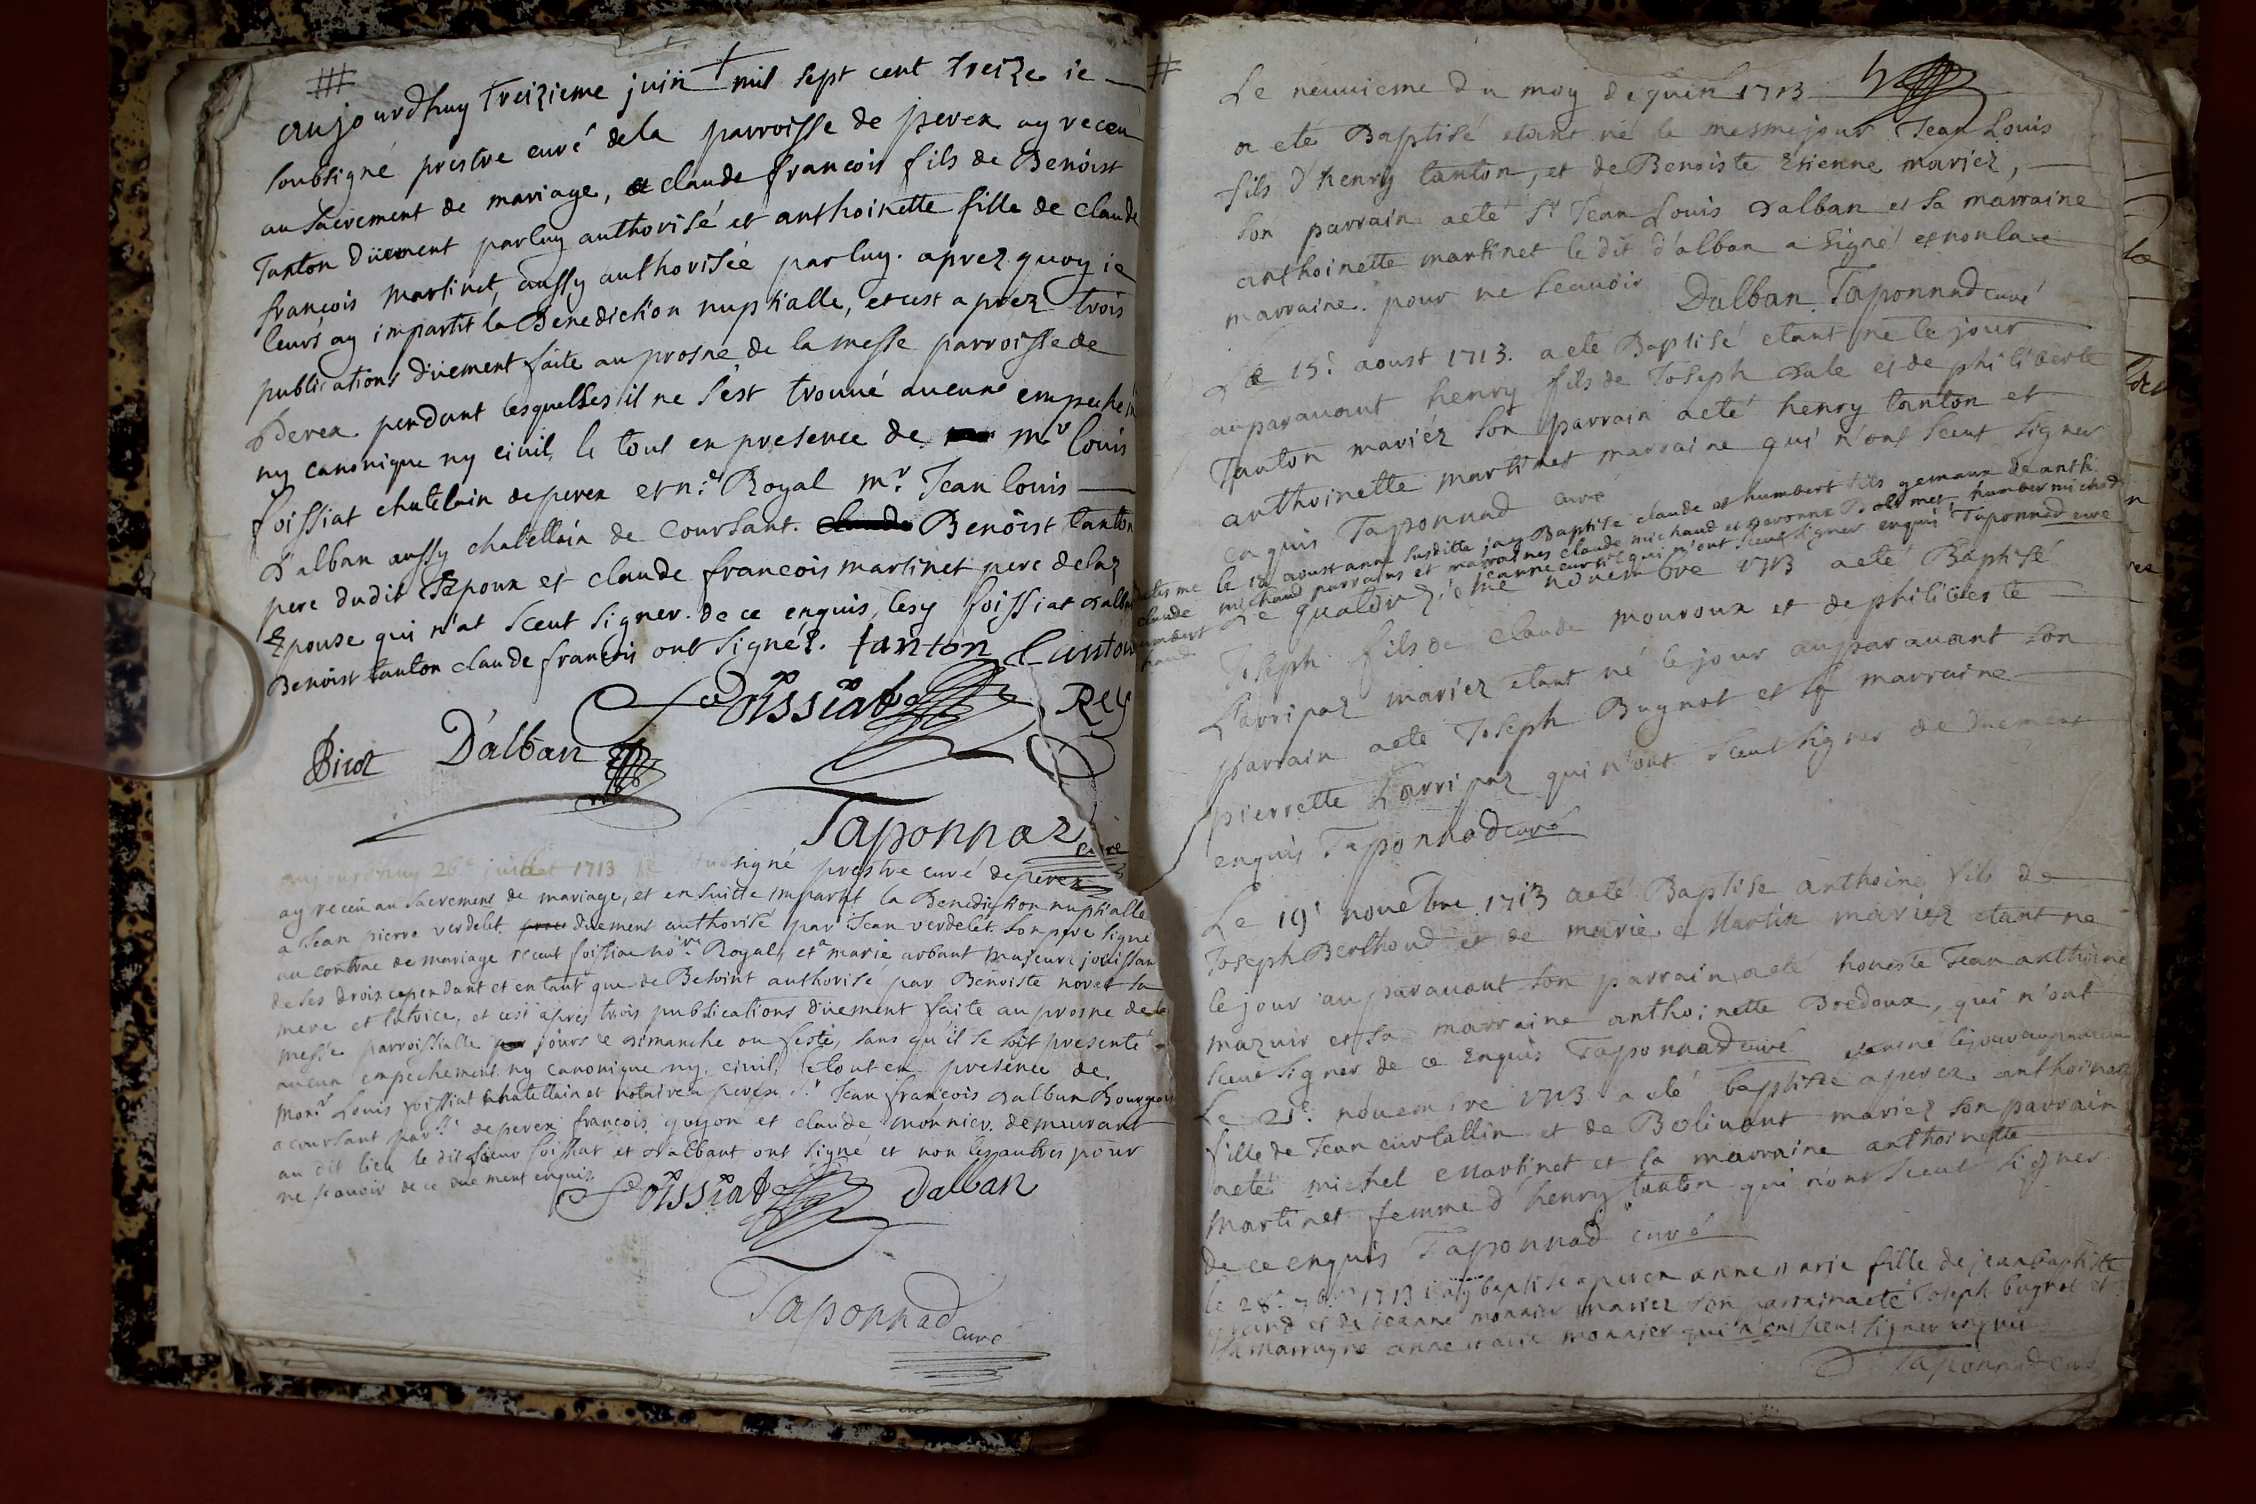 aujourdhuy treizieme juin mil sept cent treize ie
soubsigné prestre curé de la parroisse de perex ay receu
au sacrement de mariage, claude francois fils de Benoist
Tanton düement par luy authorisé et anthoinette fille de claude
françois Martinet, aussy authorisée par luy. aprez quoy ie
leurs ay impartit la Benediction nuptialle, et cest aprez trois
publications düement faite au prosne de la messe parroisse de
perex pendant lesquelles il ne s'est trouvé aucune empeche
ny canonique ny civil, le tout en presence de mr louis
foissiat chatelain de perex et n.re Royal mr. Jean louis
D'alban aussy chatellain de Coursant. Benoist tanton
pere dudit Epoux et claude francois martinet pere de laz
Epouse qui n'at sceut signer de ce enquis, lesy foissiat dalban
Benoist tanton claude francois ont signéz. tanton tanton
foissiat Rey
Picoz D'alban
Taponnaz curé
aujourdhuy 26e juillet 1713 je soubsigné prestre curé de perex
ay receu au sacrement de mariage, et ensuitte impartit la Benediction nuptialle
a Jean pierre verdelet duement authorisé par Jean verdelet son pere signé
au contrac de mariage receut foissiat no.re Royal, et marie arbant majeure jouissan
de ses drois cependant et en tant que de Besoint authorisé par Benoiste novet sa
mere et tutrice, et cest apres trois publications düement faite au prosne de la
messe parroissialle jours de dimanche ou feste, sans qu'il se soit presenté
aucun empechement ny canonique ny civil, le tout en presence de
Monr. Louis foissiat chatellain et notaire a perex, sr. Jean françois dalban Bourgeois
a coursant par.. de perex francois guyon et claude monnier demeurant
au dit lieu le dit sieur foissiat et dalbant ont signé et non les autres pour
ne scavoir de ce duement enquis
foissiat dalban
Taponnad
curé
Le neuuieme du moy de juin 1713
a eté Baptisé etant né le mesme jour Jean Louis
fils d'henry tanton, et de Benoiste Etienne mariez,
son parrain a eté sr Jean Louis dalban et sa marraine
anthoinette martinet le dit d'alban a signé et non la
marraine pour ne scavoir Dalban Taponnad curé
Le 15e aoust 1713. a eté Baptisé etant né le jour
auparauant henry fils de Joseph dale et de philiberte
Tanton mariéz son parrain a eté henry tanton et
anthoinette martinet marraine qui n'ont sceut signer
enquis Taponnad curé
le aoust anné susditte jay Baptise claude et humbert fils gemaux de anth.
michaud parrains et marraines claude michaud et humber michod
qui n'ont sceut signer enquis Taponnad curé
claude
umbert
Le quatorzième novembre 1713 a eté Baptisé
Joseph fils de claude mouroux et de philiberte
Larripaz mariez etant né le jour auparauant son
parrain a eté Joseph Bugnot et sa marraine
pierrette Larripaz qui n'ont sceut signer de duement
enquis Taponnad curé
Le 19e novembre 1713 a eté Baptise anthoine fils de
Joseph Berthoud et de marie Martin mariez etant né
le jour auparauant son parrain a eté honeste Jean anthoine
mazuir et sa marraine anthoinette Bredoux, qui n'ont
sceut signer de ce Enquis Taponnad curé
etant né le jour auparauant
Le 21e. novembre 1713 a eté baptisée a perex anthoinaz
fille de Jean curtallin et de Bolivant mariez son parrain
a eté michel Martinet et la marraine anthoinette
Martinet femme d'henry tanton qui n'ont sceut signer
de ce enquis Taponnad curé
le 28e 1713 iay baptisé a perex anne marie fille de jean baptiste
et de jeanne monnier mariez son parrain a eté Joseph bugnot et
sa marrayne anne marie monnier qui n'ont sceut signer enquis
Taponnad curé